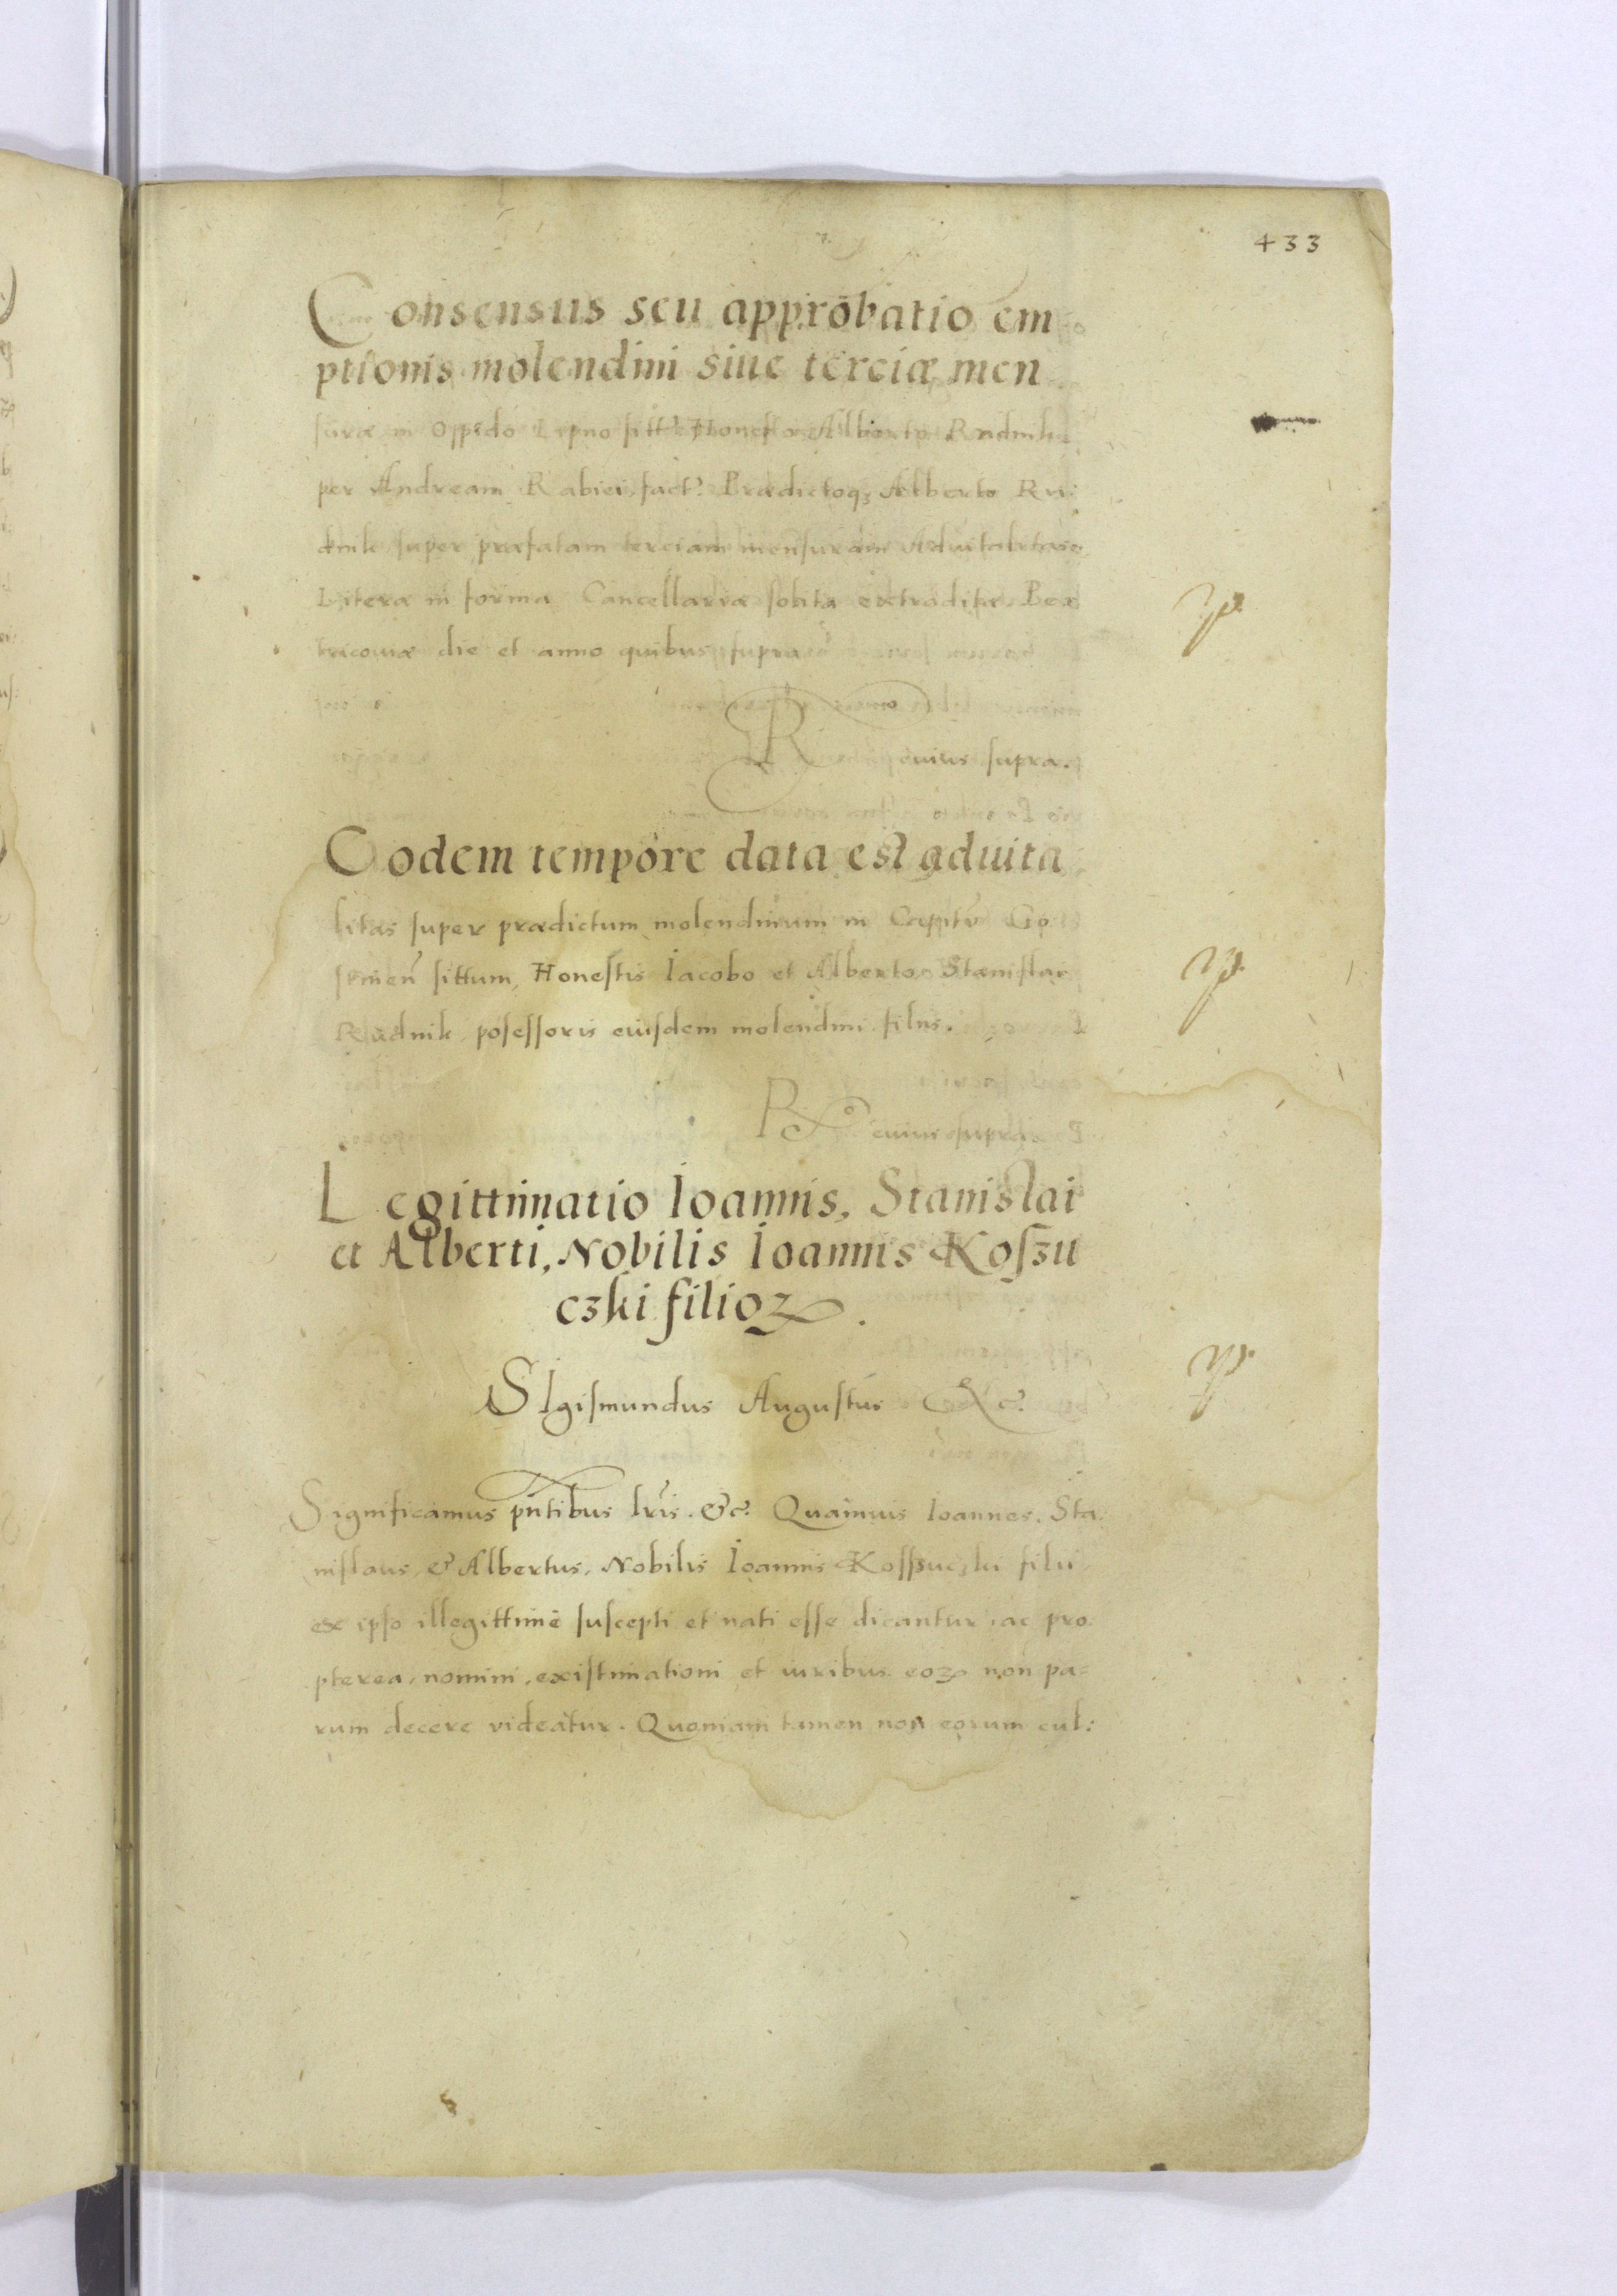 433
Consensus seu approbatio em
ptionis molendini siue terciæ men
suræ in Oppido Lipno sitt. Honesto Alberto Rudnik
per Andream Rabiei fact. Prædictoq; Alberto Ru:
dnik super præfatam terciam mensuram Aduitalitatis
Literæ in forma Cancellariæ solita extraditæ. Pe
tricouiæ die et anno quibus supra
R cuius supra.
Eodem tempore data est aduita
litas super prædictum molendinum in Capitu
sittum, Honestis Iacobo et Alberto Stanislai
Rudnik posessoris eiusdem molendini filiis.
Rº cuius supra
Legittimatio Ioannis, Stanislai
et Alberti, Nobilis Ioannis Koszu
czki filioꝝ.
SIgismundus Augustus &c.
Significamus pñtibus lr̃is. &c. Quamuis Ioannes, Sta
nislaus, & Albertus, Nobilis Ioannis Koszuczki filii
ex ipso illegittime suscepti et nati esse dicantur ac pro
pterea, nomini, existimationi et iuribus eoꝝ non pa=
rum decere videatur. Quoniam tamen non eorum cul: